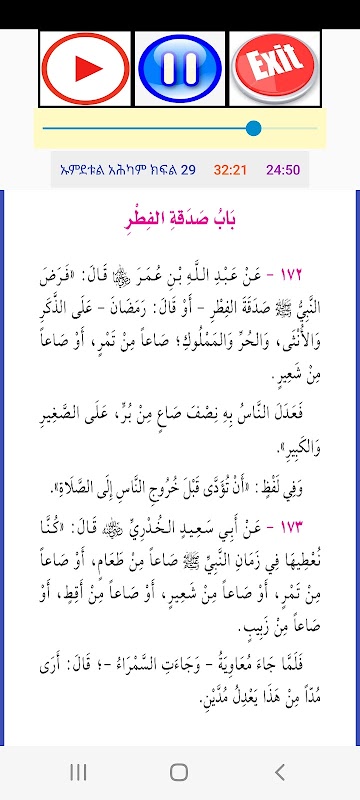 Exit
ኡምደቱል አሕካም ክፍል 29 32:21 24:50
بَابُ صَدَقةِ الفِطْرِ
١٧٢ - عَنْ عَبْدِ اللَّهِ بْنِ عُمَرَ ﵁ قَالَ: «فَرَضَ
النَّبِيُّ ﷺ صَدَقَةَ الفِطْرِ - أَوْ قَالَ: رَمَضَانَ - عَلَى الذَّكَرِ
وَالأُنْثَى، وَالحُرِّ وَالمَمْلُوكِ؛ صَاعاً مِنْ تَمْرٍ، أَوْ صَاعاً
مِنْ شَعِيرٍ.
فَعَدَلَ النَّاسُ بِهِ نِصْفَ صَاعٍ مِنْ بُرٍّ، عَلَى الصَّغِيرِ
وَالكَبِيرِ».
وَفِي لَفْظٍ: «أَنْ تُؤَدَّى قَبْلَ خُرُوجِ النَّاسِ إِلَى الصَّلَاةِ».
١٧٣ - عَنْ أَبِي سَعِيدٍ الخُدْرِيِّ ﵁ قَالَ: «كُنَّا
نُعْطِيهَا فِي زَمَانِ النَّبِيِّ ﷺ صَاعاً مِنْ طَعَامٍ، أَوْ صَاعاً
مِنْ تَمْرٍ، أَوْ صَاعاً مِنْ شَعِيرٍ، أَوْ صَاعاً مِنْ أَقِطٍ، أَوْ
صَاعاً مِنْ زَبِيبٍ.
فَلَمَّا جَاءَ مُعَاوِيَةُ - وَجَاءَتِ السَّمْرَاءُ -؛ قَالَ: أَرَى
مُدّاً مِنْ هَذَا يَعْدِلُ مُدَّيْنِ.